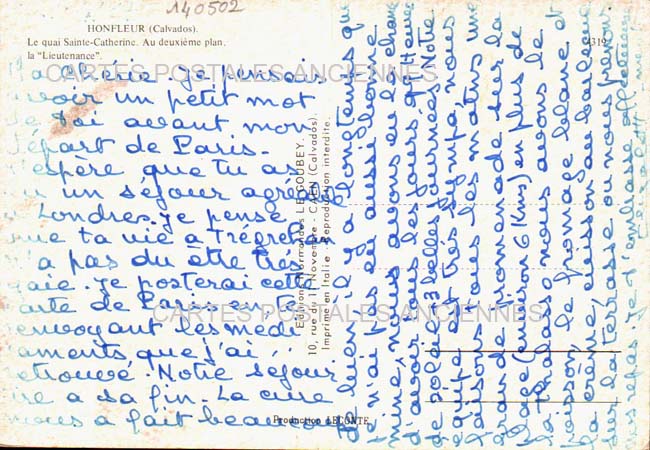 140502
HONFLEUR (Calvados).
Le quai Sainte-Catherine. Au deuxième plan,
la "Lieutenance".
4319
CARTES POSTALES ANCIENNES
Ma chérie je pensais
avoir un petit mot
de toi avant mon
départ de Paris.
J'espère que tu as
un séjour agréable
à Londres. Je pense
que ta vie à Trégre
n'a pas du être très
gaie. Je posterai cette
carte de Paris en t'
envoyant les medi
caments que j'ai
retrouvé. Notre séjour
tire à sa fin. La cure
nous a fait beaucoup
de bien, il y a longtemps que
je n'ai pas eu aussi bonne
mine, nous avons eu la chance
d'avoir tous les jours
de soleil, 3 belles journées. Notre
équipe est très sympa, nous
faisons tous les matins une
grande promenade sur la
plage (environ 6 Kms) en plus de
la Thalasso, nous avons le
poisson, le fromage blanc et
la crème,
sur la terrasse où nous prenons
nos repas. Je t'embrasse affectueusement
Editions Normandes LE GOUBEY.
10, rue du 11 Novembre - CAEN (Calvados).
Imprimé en Italie - Reproduction interdite.
CARTES POSTALES ANCIENNES
Production LECONTE